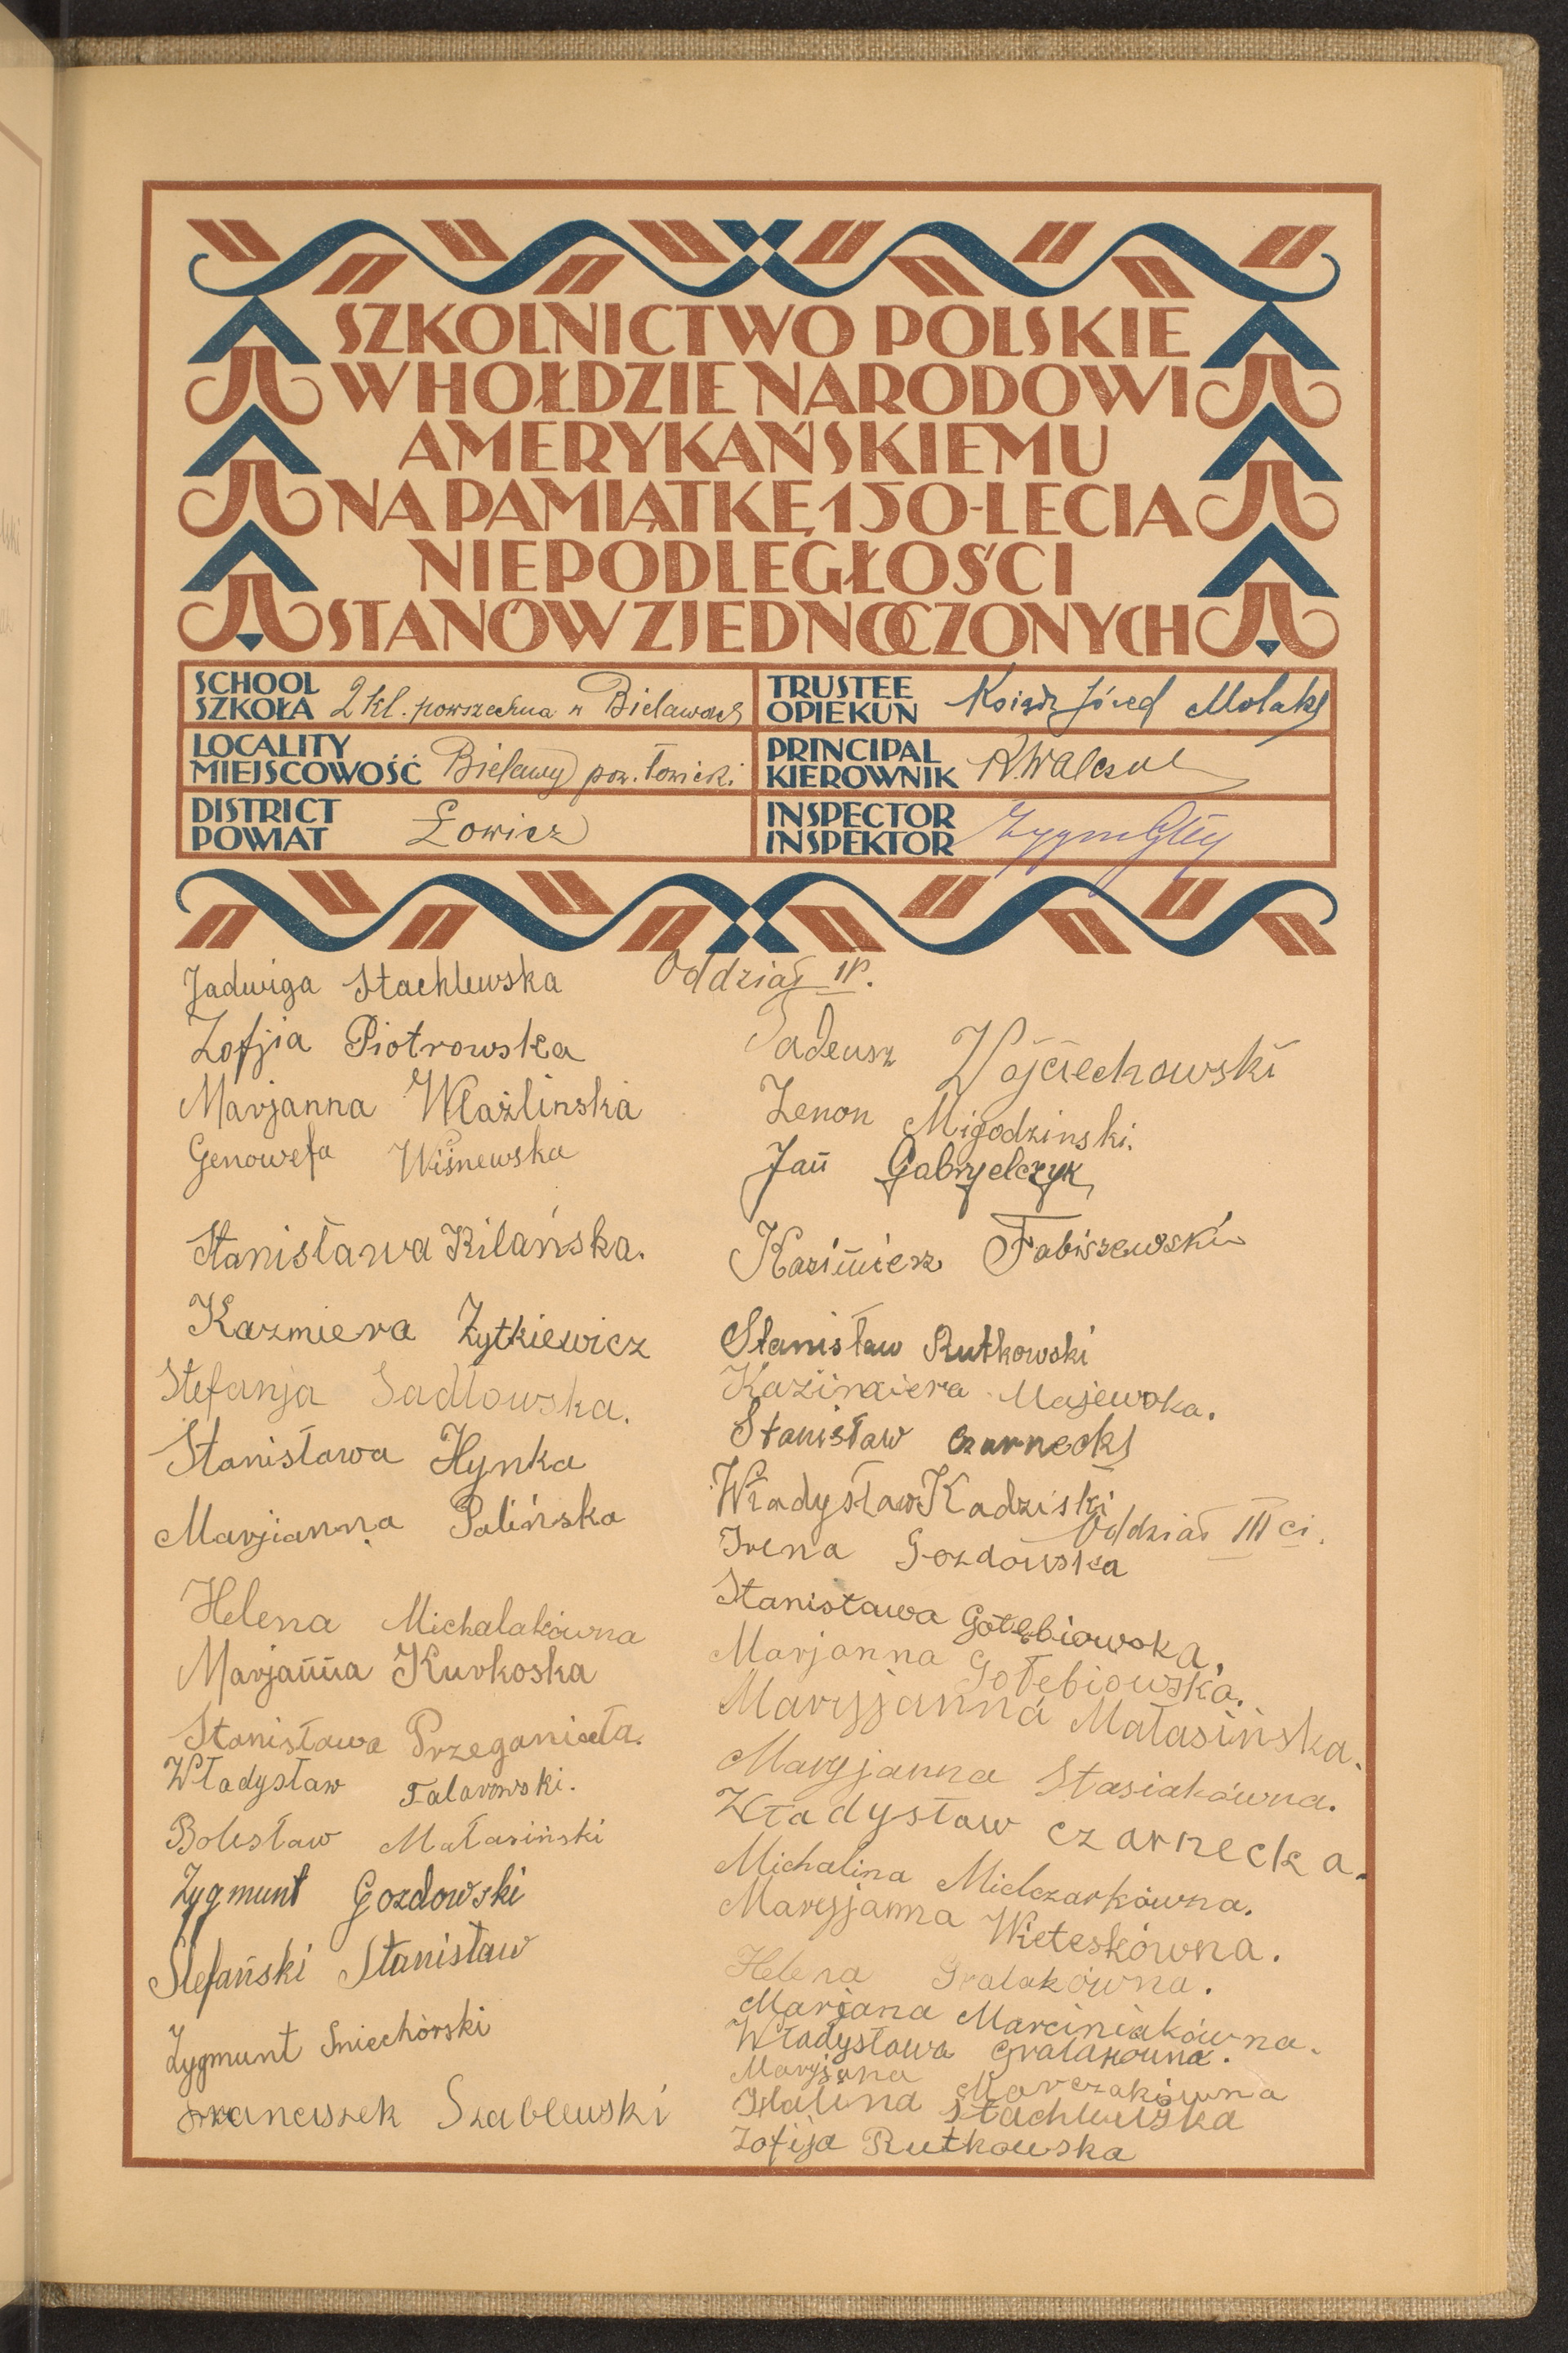 SZKOLNICTWO POLSKIE
W HOŁDZIE NARODOWI
AMERYKAŃSKIEMU
NA PAMIĄTKĘ 150-LECIA
NIEPODLEGŁOŚCI
STANÓW ZJEDNOCZONYCH
SCHOOL
SZKOŁA 2 kl. powszechna w Bielawach
TRUSTEE
OPIEKUN Ksiądz Józef
LOCALITY
MIEJSCOWOŚĆ Bielawy pow. łowicki
PRINCIPAL
KIEROWNIK
DISTRICT
POWIAT Łowicz
INSPECTOR
INSPEKTOR
Oddział IV.
Jadwiga Stachlewska
Zofjia Piotrowska
Marjanna Wlaźlinska
Genowefa Wiśnewska
Stanisława Kilańska.
Kazmiera Żytkiewicz
Stefanja Sadlowska.
Stanisława Hynka
Marjianna Palińska
Helena Michalakówna
Marjanna Kurkoska
Stanisława Przeganiała.
Władysław Falarowski.
Bolesław Małasiński
Zygmunt Gozdowski
Stefański Stanisław
Zygmunt Sniechórski
Franciszek Szablewski
Tadeusz Wojciechowski
Zenon Migodzinski.
Jan Gabryelczyk
Kazimierz Fabiszewski
Stanisław Rutkowski
Kazimiera Majewska.
Stanisław Czarnecki
Władysław Kadziski
Oddział III ci.
Irena Gozdowska
Stanisława Gołębiowska.
Marjanna Gołebiowska.
Maryjanna Małasińska.
Maryjanna Stasiakówna.
Władysław czarnecka.
Michalina Mielczarkówna.
Maryjanna Wieteskówna.
Helena Gralakówna.
Marjana Marciniakówna.
Władysława Gralakówna.
Maryjana Marczakówna
Halina Stachlewska
Zofija Rutkowska